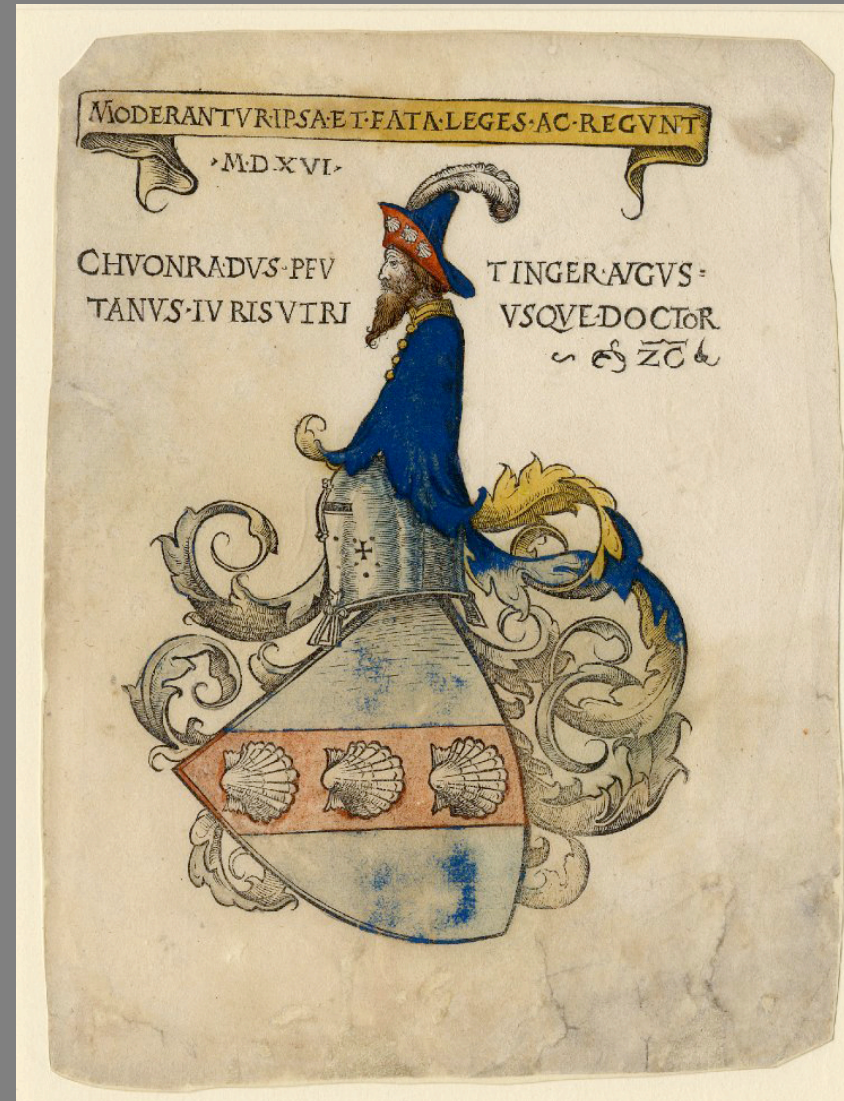 MODERANTVR·IPSA·ET·FATA·LEGES·AC·REGVNT
·M·D·XVI·
CHVONRADVS·PEV TINGER·AVGVS=
TANVS·IVRIS VTRI VSQVE·DOCTOR